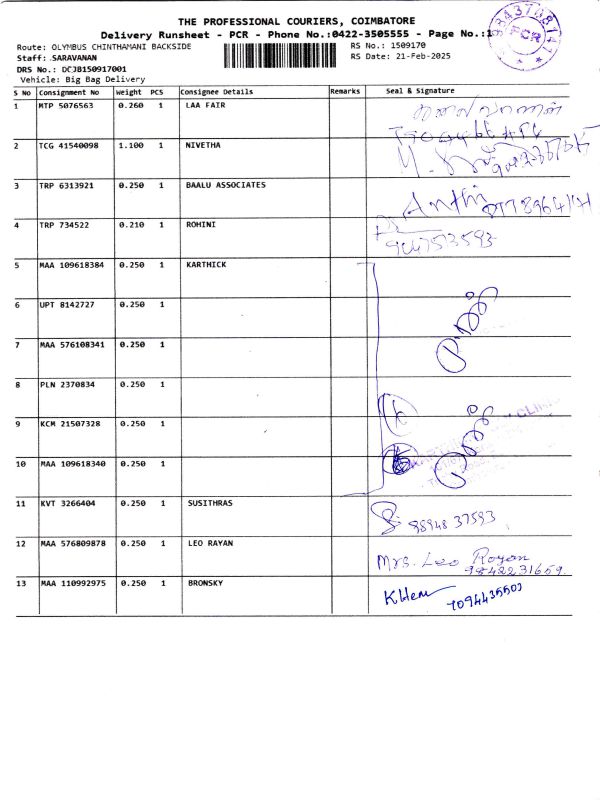 THE PROFESSIONAL COURIERS, COIMBATORE
Delivery Runsheet - PCR - Phone No.:0422-3505555 - Page No.:1
Route: OLYMBUS CHINTHAMANI BACKSIDE RS No.: 1509170
Staff: SARAVANAN RS Date: 21-Feb-2025
DRS No.: DCJB150917001
Vehicle: Big Bag Delivery
PCR
S No Consignment No Weight PCS Consignee Details Remarks Seal & Signature
1 MTP 5076563 0.260 1 LAA FAIR
2 TCG 41540098 1.100 1 NIVETHA
3 TRP 6313921 0.250 1 BAALU ASSOCIATES
4 TRP 734522 0.210 1 ROHINI 9047513593
5 MAA 109618384 0.250 1 KARTHICK
6 UPT 8142727 0.250 1
7 MAA 576108341 0.250 1
8 PLN 2370834 0.250 1
9 KCM 21507328 0.250 1
10 MAA 109618340 0.250 1
11 KVT 3266404 0.250 1 SUSITHRAS 98948 37593
12 MAA 576809878 0.250 1 LEO RAYAN Mrs. Leo Rayan
9842231659
13 MAA 110992975 0.250 1 BRONSKY KHem
7094435503